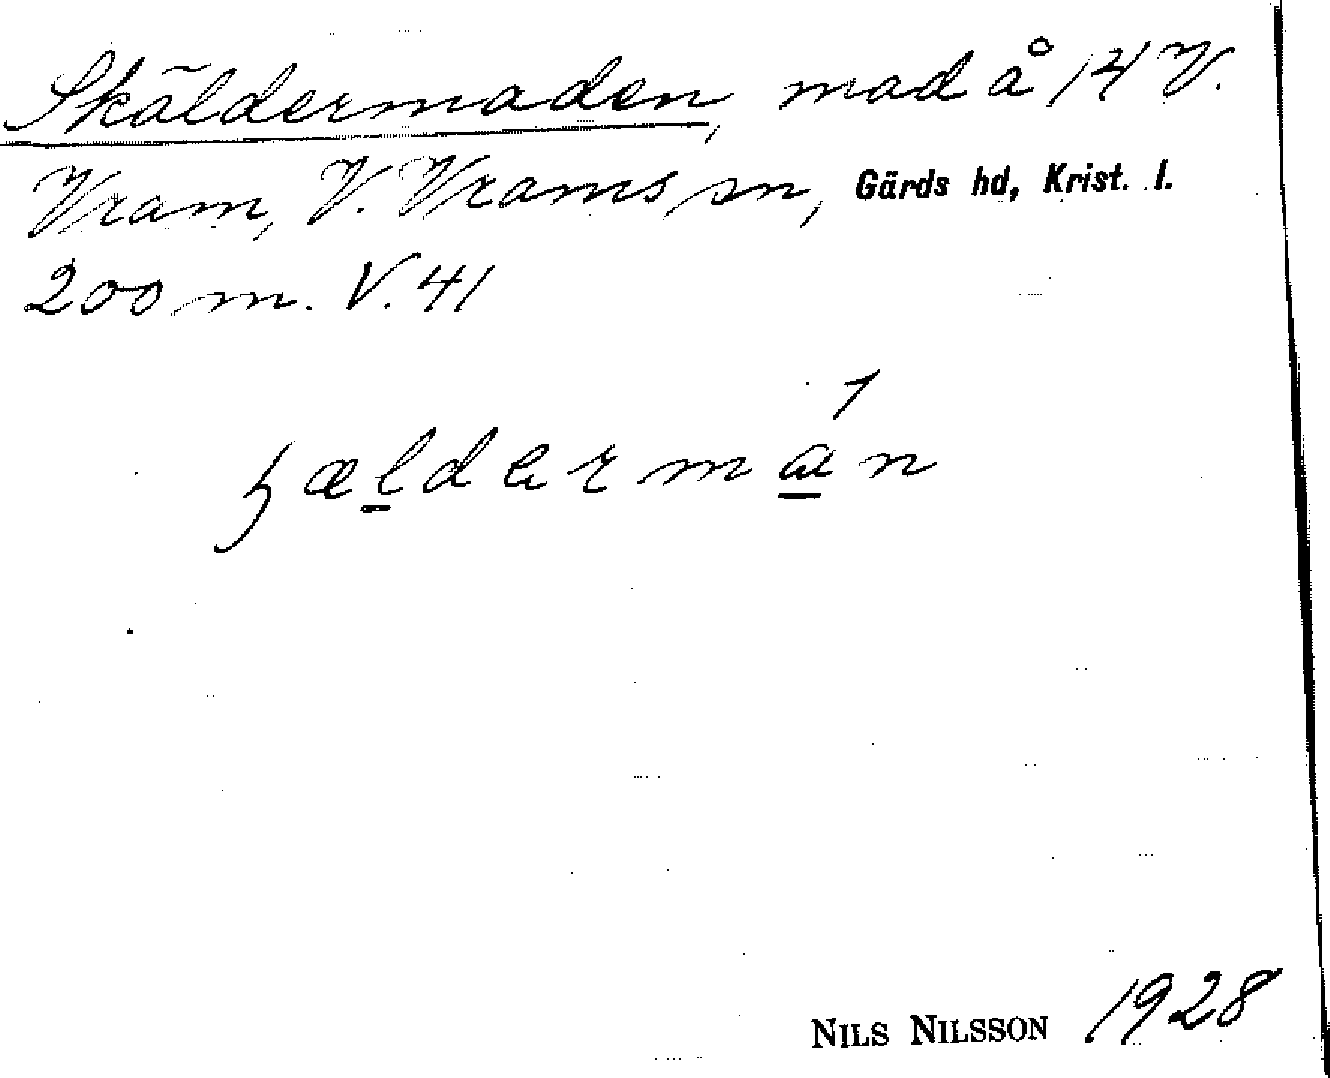 Skäldermaden, mad å 14 V.
Vram, V. Vrams sn, Gärds hd, Krist. l.
200 m. V. 41
NILS NILSSON 1928